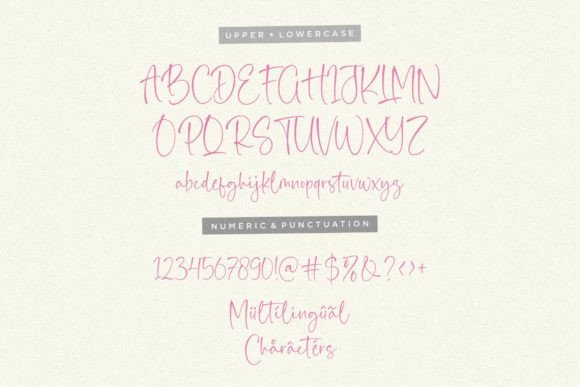 UPPER + LOWERCASE
ABCDEFGHIJKLMN
OPQRSTUVWXYZ
abcdefghijklmnopqrstuvwxyz
NUMERIC & PUNCTUATION
1234567890!@#$%&?<>+
Mültílingûãl
Chåràctérs